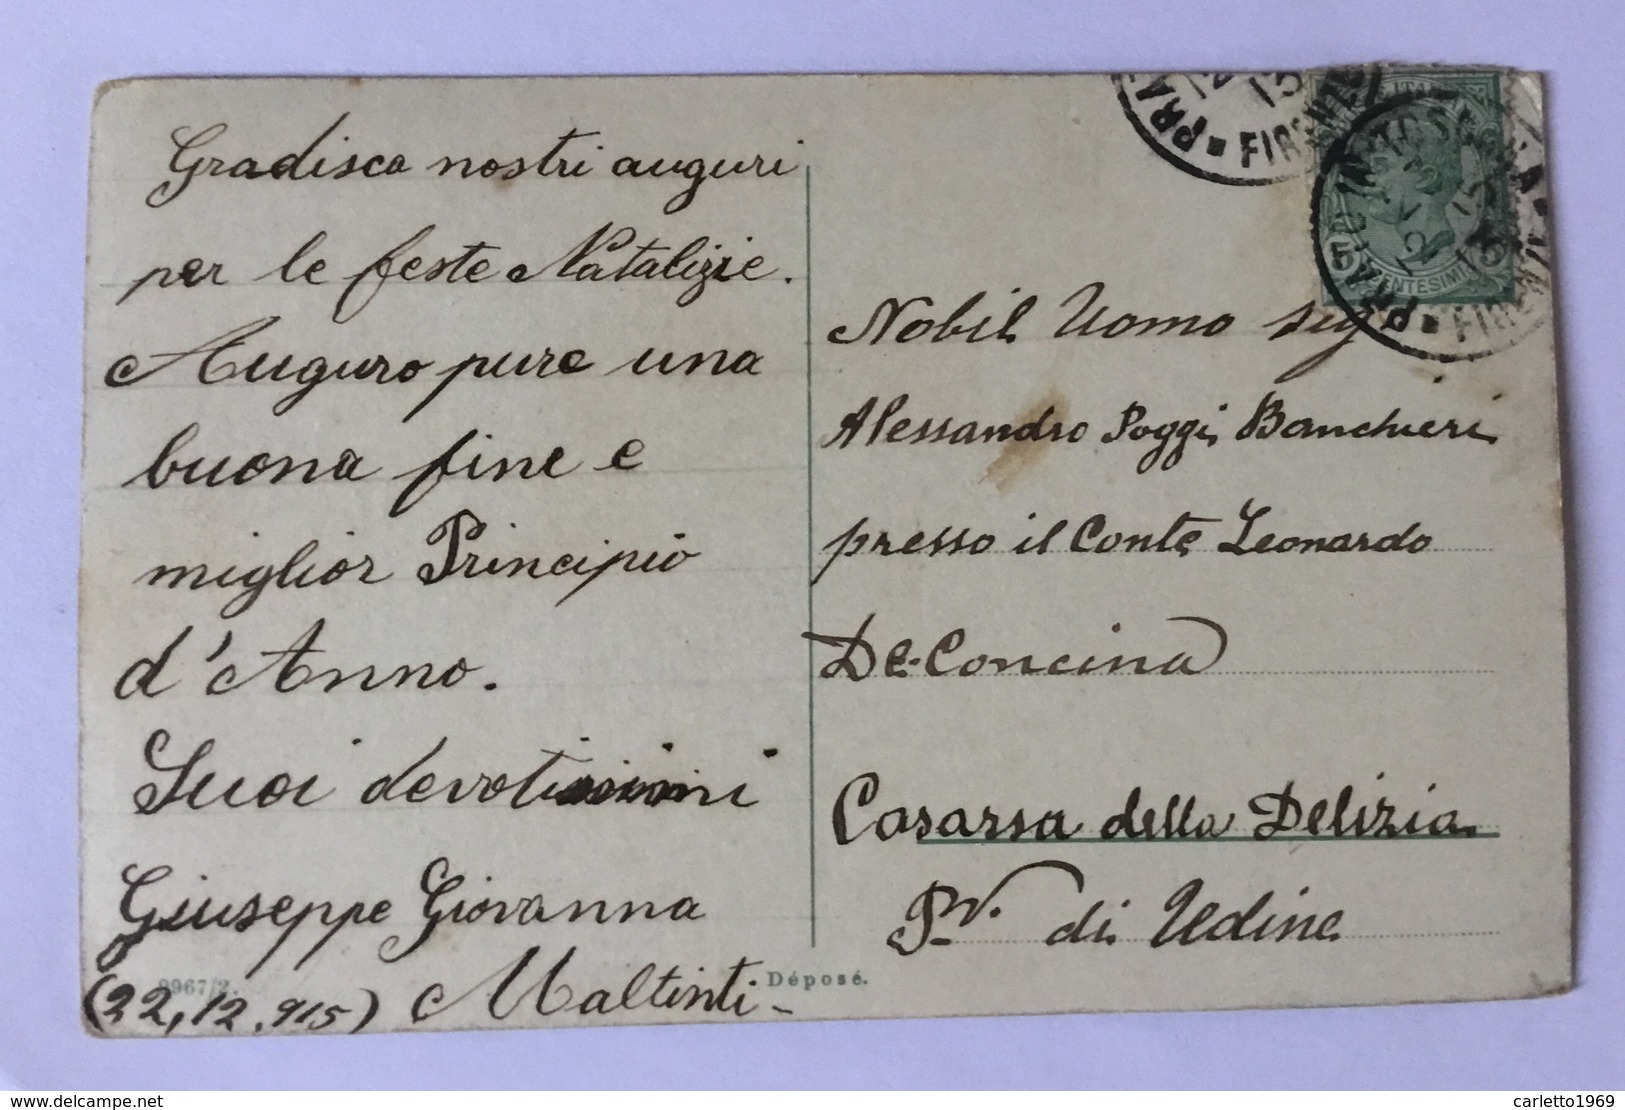 Gradisca nostri auguri
per le feste Natalizie.
Auguro pure una
buona fine e
miglior Principio
d'Anno.
Suoi devotissimi
Giuseppe Giovanna
Maltinti -
(22,12.915)
9967/2.
Déposé.
Nobil Uomo sig
Alessandro Poggi Banchieri
presso il Conte Leonardo
De-Concina
Casarsa della Delizia
Pv. di Udine
FIRENZE
CENTESIMI
FIRENZE
www.delcampe.net
carletto1969